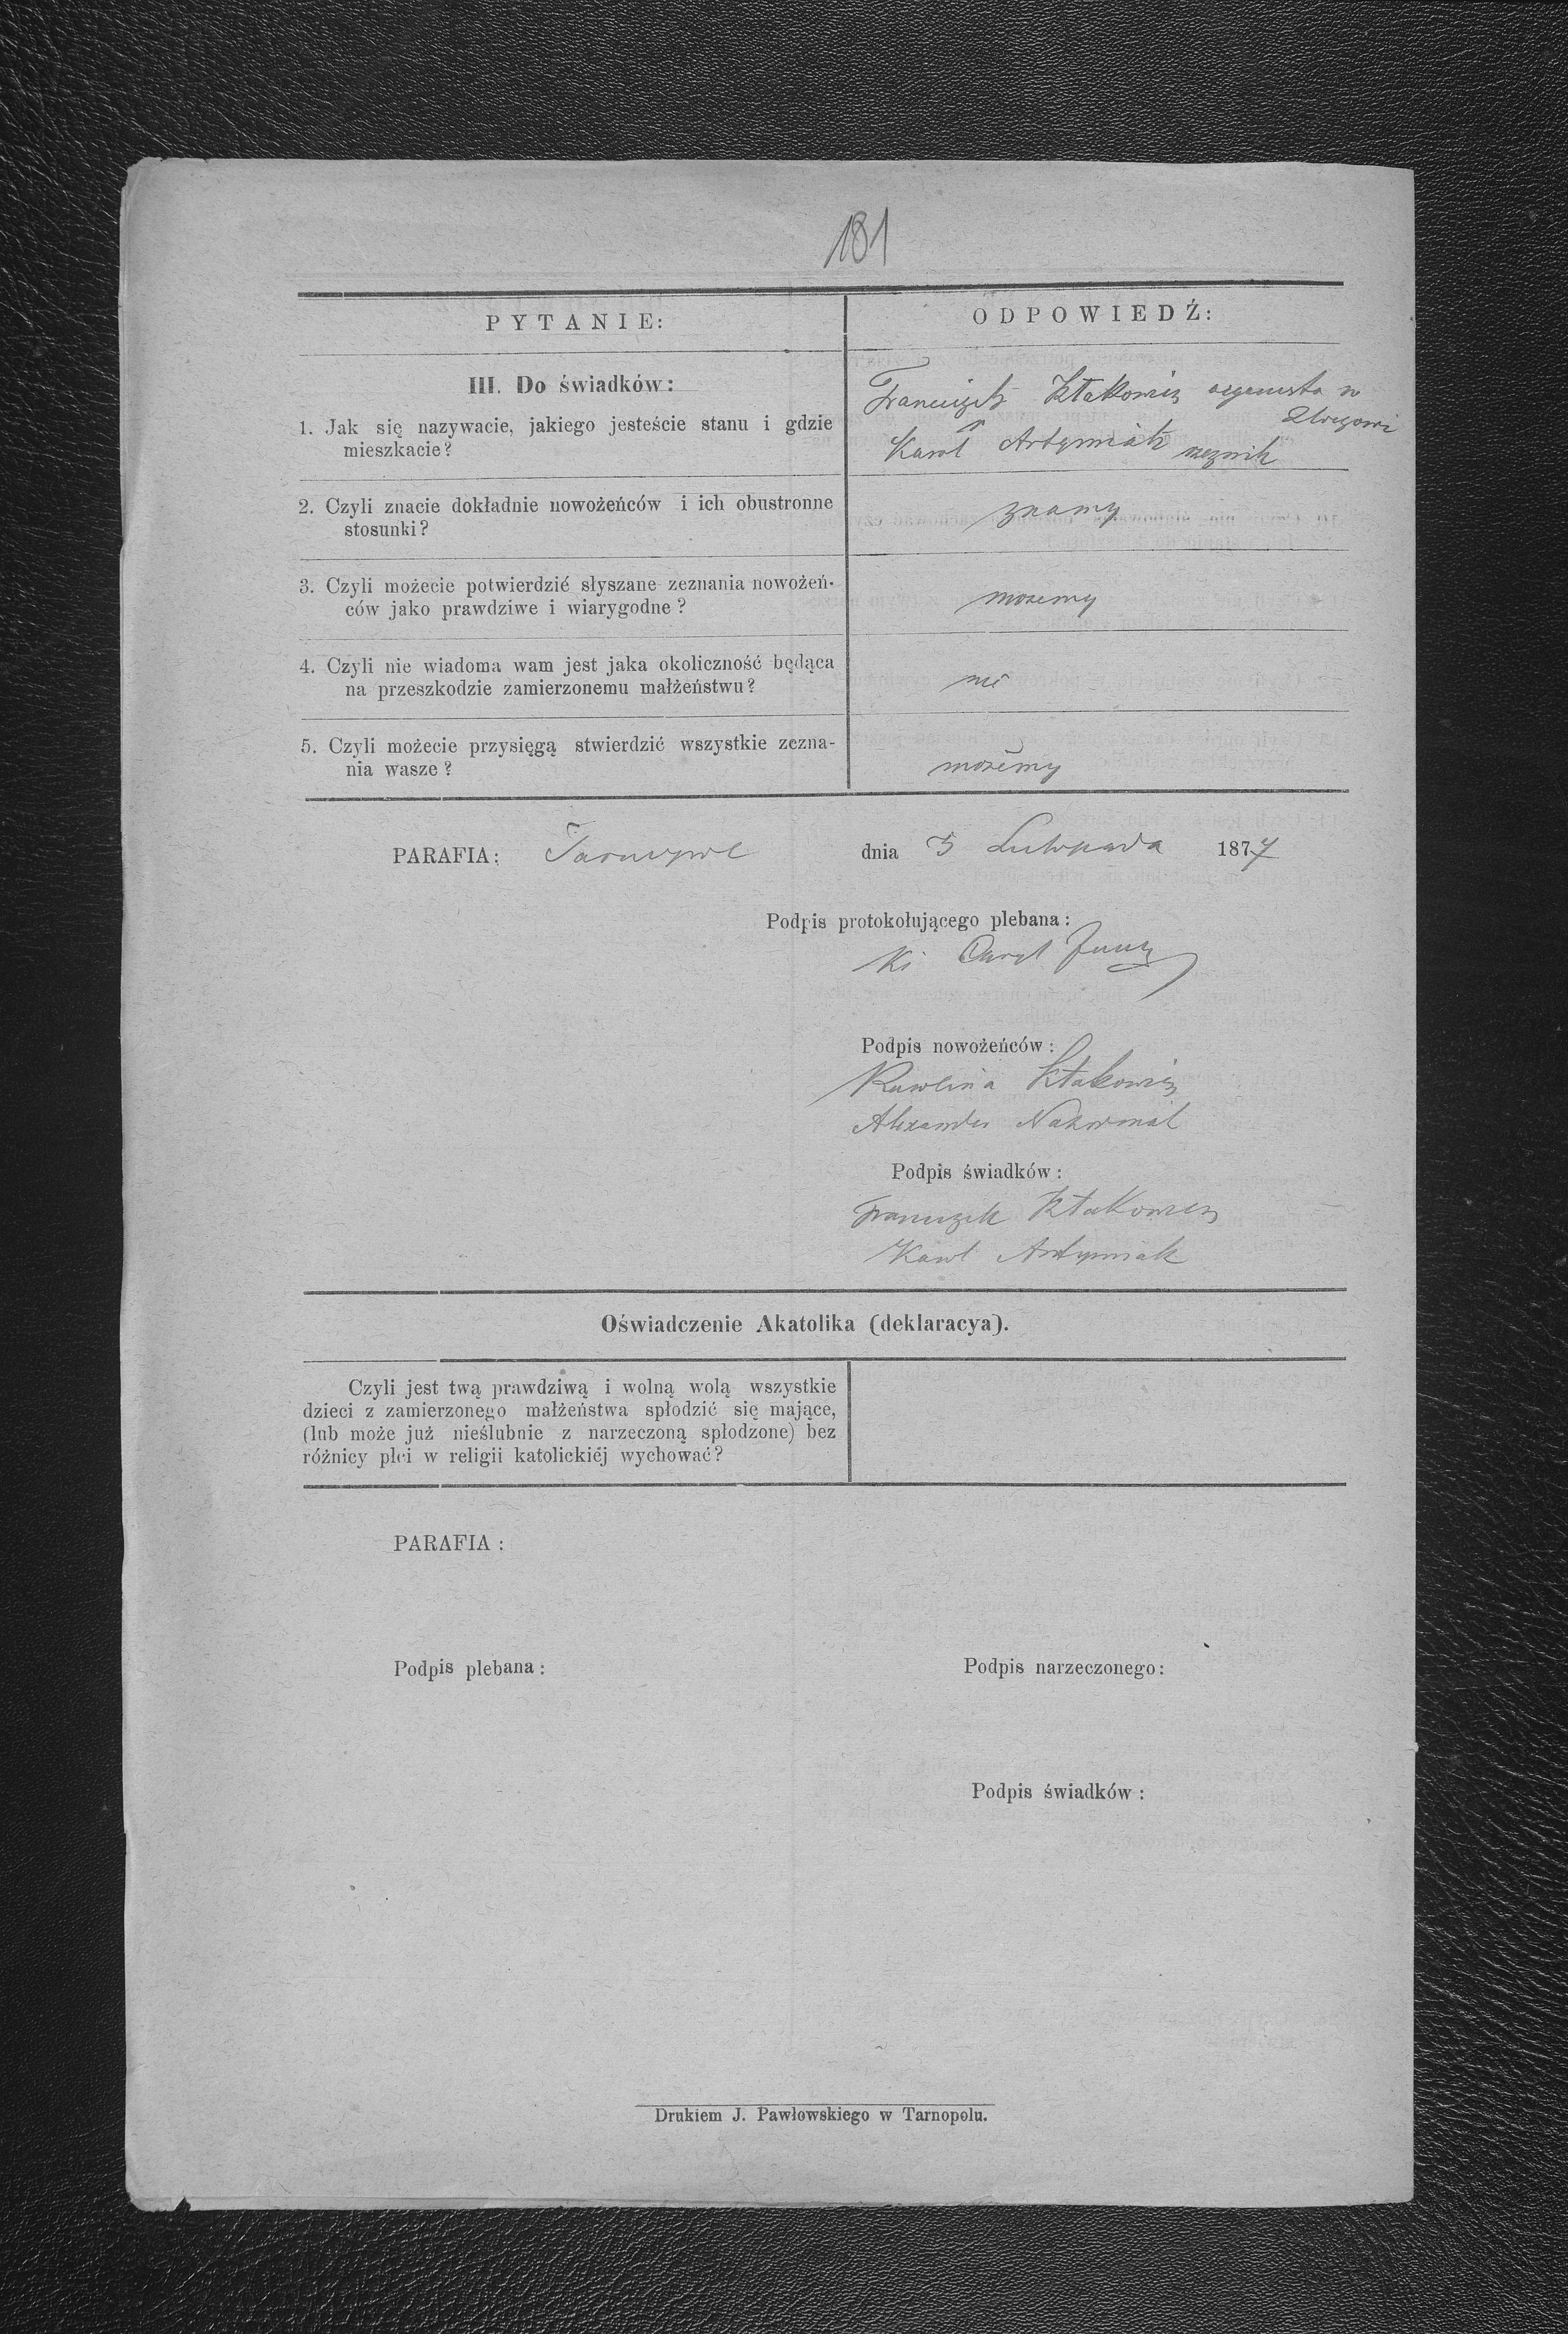 181
PYTANIE:
ODPOWIEDŹ:
III. Do świadków:
1. Jak się nazywacie, jakiego jesteście stanu i gdzie
mieszkacie?
Franciszek Ktakowicz organista w
Karol Artymiak
2. Czyli znacie dokładnie nowożeńców i ich obustronne
stosunki?
znamy
3. Czyli możecie potwierdzić słyszane zeznania nowożeń-
ców jako prawdziwe i wiarygodne?
możemy
4. Czyli nie wiadoma wam jest jaka okoliczność będąca
na przeszkodzie zamierzonemu małżeństwu?
nie
5. Czyli możecie przysięgą stwierdzić wszystkie zezna-
nia wasze?
możemy
PARAFIA: Tarnopol dnia 3 Listopada 1877
Podpis protokołującego plebana:
Podpis nowożeńców:
Pawlina Ktakowicz
Alexander
Podpis świadków:
Franciszek Ktakowicz
Karol Artymiak
Oświadczenie Akatolika (deklaracya).
Czyli jest twą prawdziwą i wolną wolą wszystkie
dzieci z zamierzonego małżeństwa spłodzić się mające,
(lub może już nieślubnie z narzeczoną spłodzone) bez
różnicy płci w religii katolickiéj wychować?
PARAFIA:
Podpis plebana:
Podpis narzeczonego:
Podpis świadków:
Drukiem J. Pawłowskiego w Tarnopolu.